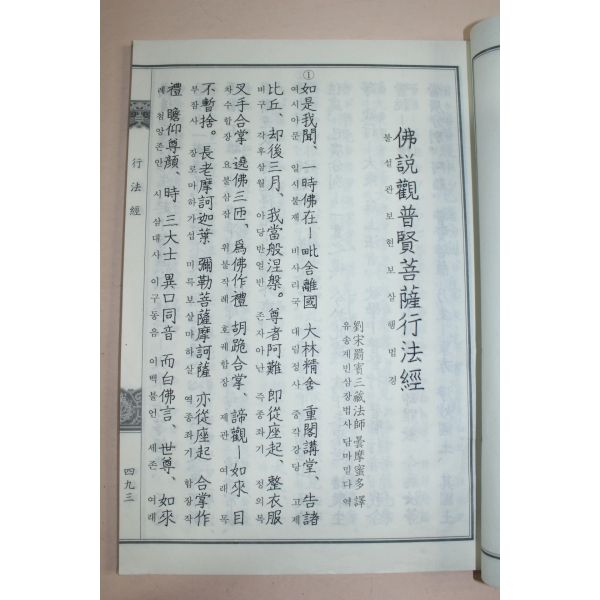 佛說觀普賢菩薩行法經
불설관보현보살행법경
劉宋罽賓三藏法師 曇摩蜜多譯
유송계빈삼장법사 담마밀다역
①
如是我聞、一時佛在ㅣ毗舍離國 大林精舍 重閣講堂、告諸
여시아문 일시불재 비사리국 대림정사 중각강당 고제
比丘、却後三月、我當般涅槃。尊者阿難 即從座起、整衣服
비구 각후삼월 아당반열반 존자아난 즉종좌기 정의복
叉手合掌 遶佛三匝、爲佛作禮 胡跪合掌、諦觀ㅣ如來 目
차수합장 요불삼잡 위불작례 호궤합장 제관 여래 목
不暫捨。長老摩訶迦葉 彌勒菩薩摩訶薩 亦從座起 合掌作
부잠사 장로마하가섭 미륵보살마하살 역종좌기 합장작
禮 瞻仰尊顔、時 三大士 異口同音 而白佛言、世尊、如來
례 첨앙존안 시 삼대사 이구동음 이백불언 세존 여래
行法經
四九三